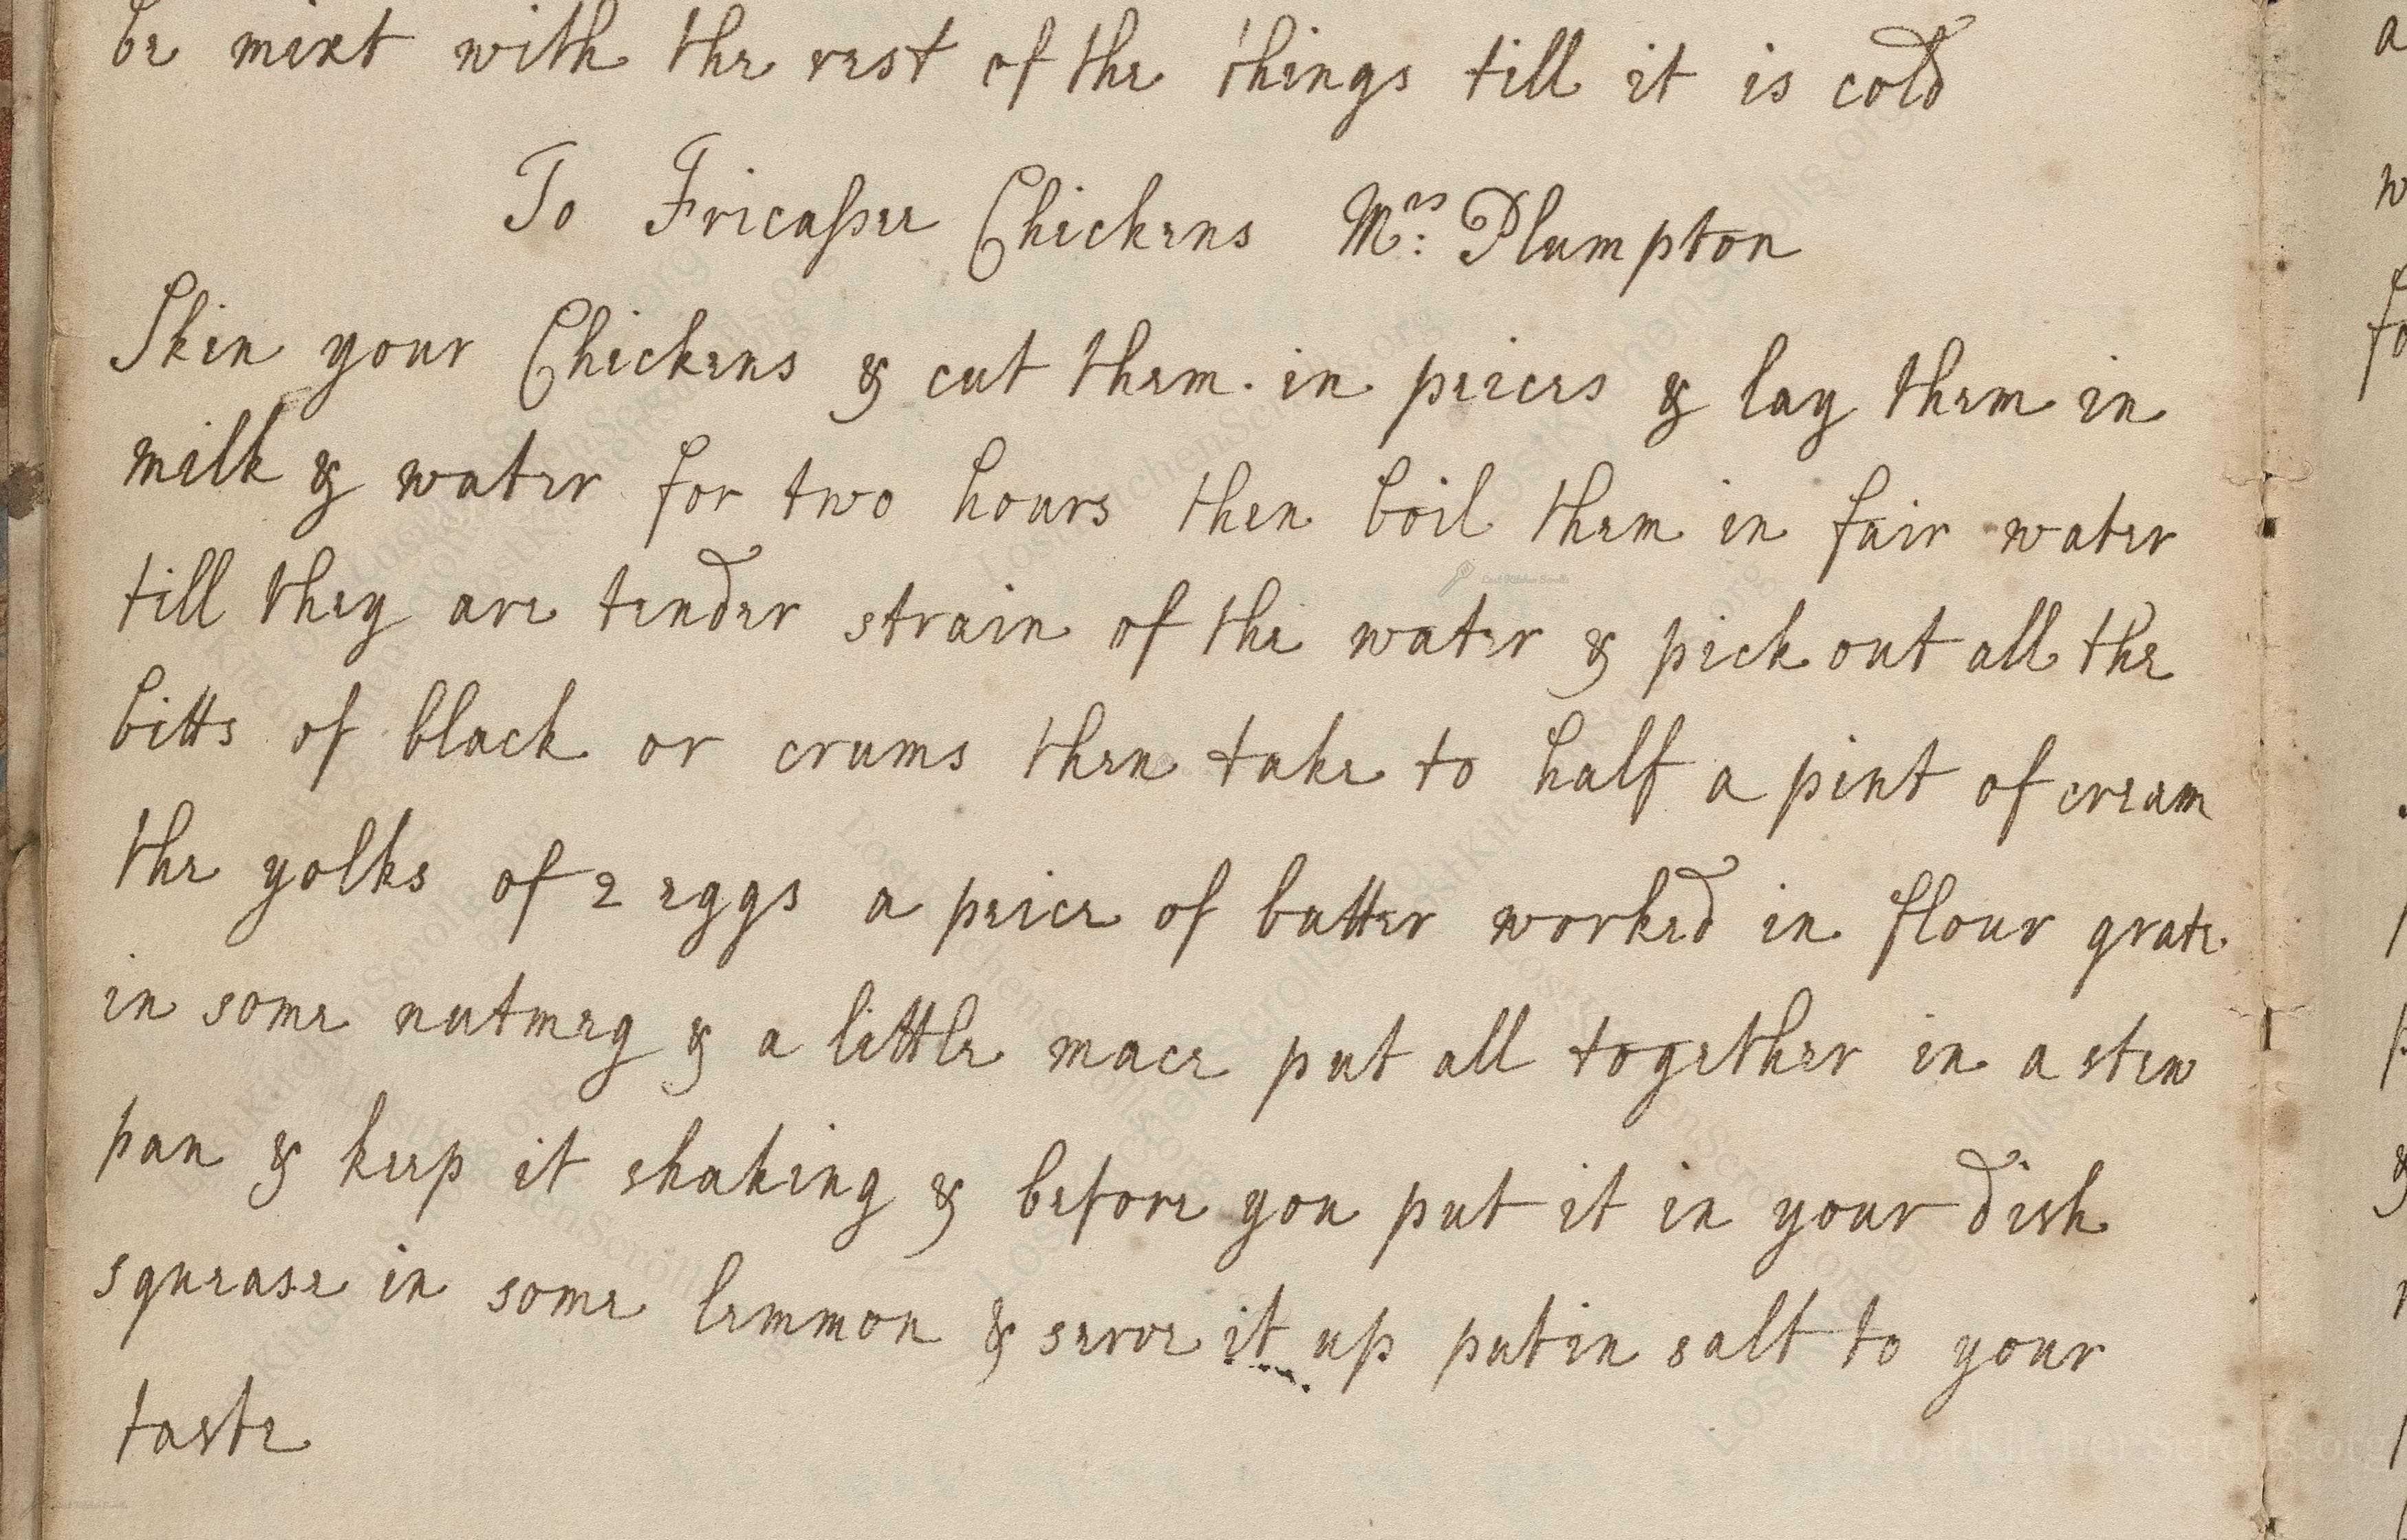 be mixt with the rest of the things till it is cold
To Fricaſsee Chickens Mrs: Plumpton
Skin your Chickens & cut them in peices & lay them in
milk & water for two hours then boil them in fair water
till they are tender strain of the water & pick out all the
bitts of black or crums then take to half a pint of cream
the yolks of 2 eggs a peice of butter worked in flour grate
in some nutmeg & a little mace put all together in a stew
pan & keep it shaking & before you put it in your dish
squease in some lemmon & serve it up put in salt to your
taste
LostKitchenScrolls.org